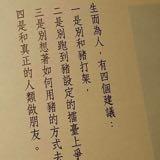 生而為人，有四個建議：
一是別和豬打架，
二是別跑到豬設定的擂臺上爭
三是別想著如何用豬的方式去
四是和真正的人類做朋友。